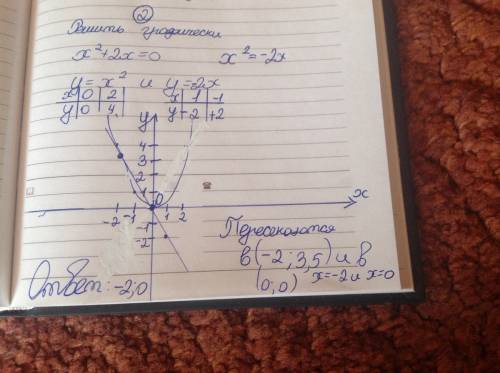 ②
Решить графически
x²+2x=0 x²=-2x
y=x² и y=-2x
x 0 2 x 1 -1
y 0 4 y -2 +2
y
4
3
2
1
0 x
-2 -1 1 2
-1
-2
Пересекаются
в (-2; 3,5) и в
(0;0) x=-2 и x=0
Ответ: -2; 0